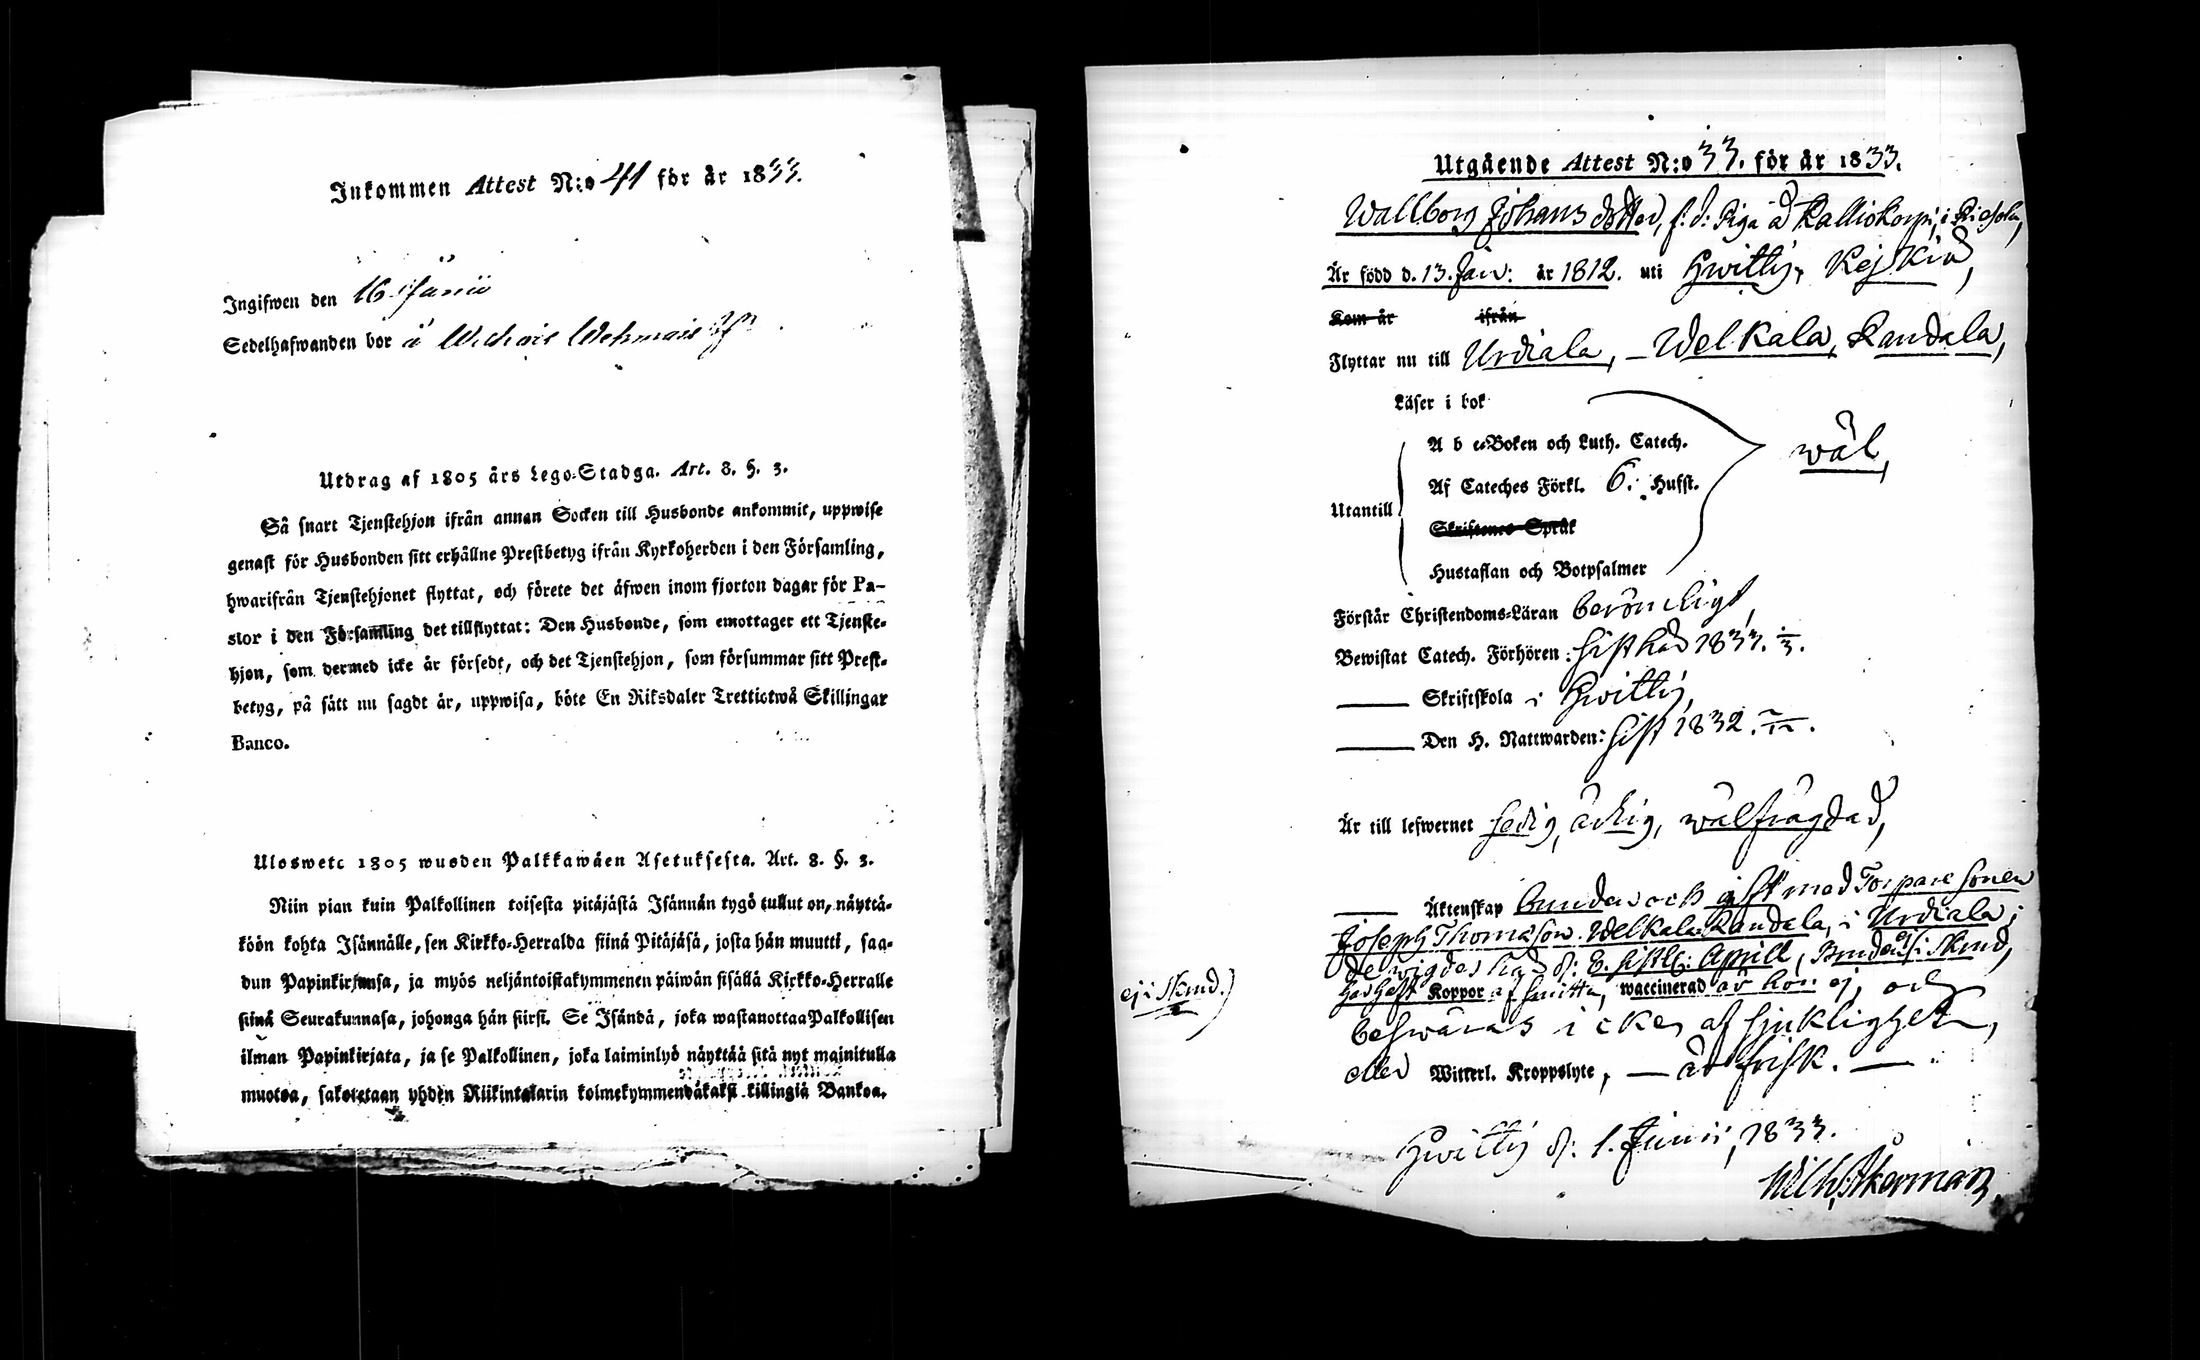 Inkommen Attest N:o 41 för år 1833.
Ingifwen den 16 Junii
Sedelhafwanden bor å
Utdrag af 1805 års Lego-Stadga. Art. 8. §. 3.
Så snart Tjenstehjon ifrån annan Socken till Husbonde ankommit, uppwise
genast för Husbonden sitt erhållne Prestbetyg ifrån Kyrkoherden i den Församling,
hwarifrån Tjenstehjonet flyttat, och förete det äfwen inom fjorton dagar för Pa-
stor i den Församling det tillflyttat: Den Husbonde, som emottager ett Tjenste-
hjon, som dermed icke är försedt, och det Tjenstehjon, som försummar sitt Prest-
betyg, på sätt nu sagdt är, uppwisa, böte En Riksdaler Trettiotwå Skillingar
Banco.
Uloswete 1805 wuoden Palkkawäen Asetuksesta. Art. 8. §. 3.
Niin pian kuin Palkollinen toisesta pitäjästä Isännän tygö tullut on, näyttä-
köön kohta Isännälle, sen Kirkko-Herralda siinä Pitäjäsä, josta hän muutti, saa-
dun Papinkirjansa, ja myös neljäntoistakymmenen päiwän sisällä Kirkko-Herralle
siinä Seurakunnasa, johonga hän siirsi. Se Isändä, joka wastanottaa Palkollisen
ilman Papinkirjata, ja se Palkollinen, joka laiminlyö näyttää sitä nyt mainitulla
muotoa, sakotetaan yhden Riikintalarin kolmekymmendäkaksi killingiä Bankoa.
Utgående Attest N:o 33. för år 1833.
Wallborg Johansdotter, f. d. Piga å Kalliokorpi, i
Är född d. 13. Jan: år 1812. uti Hwittis, Kejkiö,
Kom år ifrån
Flyttar nu till Urdiala, — Welkala, Kandala,
Läser i bok
A b c-Boken och Luth. Catech.
wäl,
Af Cateches Förkl. 6. Hufst.
Utantill
Skriftenes Språk
Hustaflan och Botpsalmer
Förstår Christendoms-Läran berömligt,
Bewistat Catech. Förhören: sisthåd 1833. 3/3.
Skriftskola i Hwittis,
Den H. Nattwarden: sist 1832.
Är till lefwernet sedig, ärlig, wälfrägdad,
Äktenskap bunden och gift med Torpare sonen
Joseph Thomasson Welkala Kandala, i Urdiala;
de wigdes här d: 6. sistl: Aprill, Bruden ej: i Skrud,
ej i Skrud.)
har haft Koppor af smitta, waccinerad är hon ej, och
beswäras icke af sjuklighet,
eller Witterl. Kroppslyte, — är frisk. —
Hwittis d: 1. Junii, 1833.
Wilh. Åkerman,